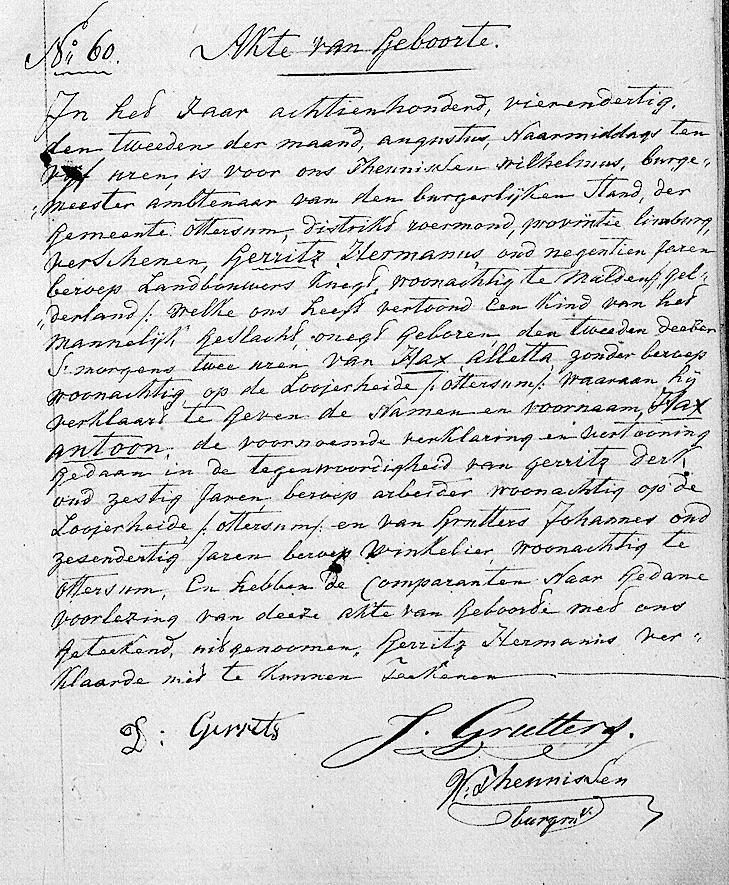 No 60. Akte van Geboorte.
In het Jaar achtienhonderd, vierendertig,
den tweeden der maand, augustus, Naarmiddags ten
vyf uren, is voor ons Theunissen wilhelmus, burge-
meester ambtenaar van den burgerlijken Stand, der
gemeente Ottersum, distrikt roermond, provintie limburg,
verschenen, Gerritz Hermanus, oud negentien Jaren
beroep Landbouwers Knegt, woonachtig te Malden /: gel-
derland /: welke ons heeft vertoond Een Kind van het
mannelijk geslacht onegt geboren, den tweeden deezer
S'morgens twee uren van Hax alletta zonder beroep
woonachtig op de Loojerheide /: ottersum /: Waaraan hij
verklaart te geven de Namen en voornaam, Hax
antoon, de voornoemde verklaring en vertooning
gedaan in de tegenwoordigheid van gerritz Derk,
oud zestig Jaren beroep arbeider woonachtig op de
Loojerheide /: ottersum /: en van Grutters Johannes oud
zesendertig Jaren beroep Winkelier, woonachtig te
ottersum, En hebben de Comparanten Naar gedane
voorlezing van deeze akte van Geboorde med ons
geteekend, uitgenoomen, Gerritz Hermanus ver-
klaarde niet te kunnen Teekenen
D: Gerrets J. Grutters.
W: Theunissen
burgmr.